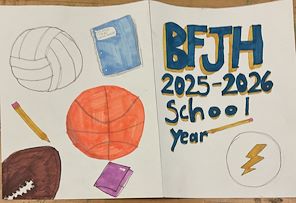 BFJH
2025-2026
School
year